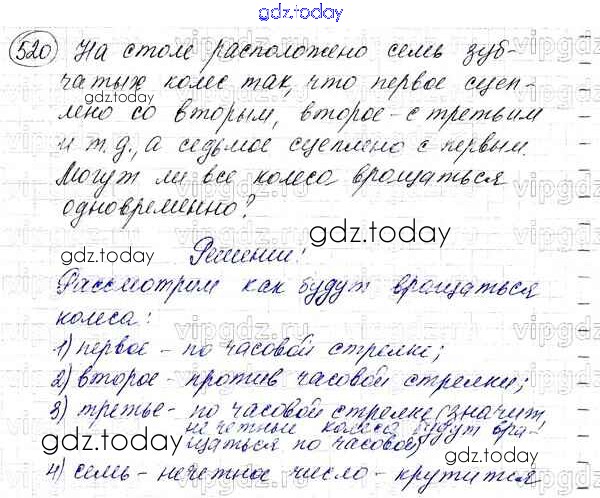 gdz.today
520 На столе расположено семь зуб-
чатых колес так, что первое сцеп-
gdz.today
лено со вторым, второе - с третьим
и т.д., а седьмое сцеплено с первым.
Могут ли все колеса вращаться
одновременно?
gdz.today
gdz.today
Решении:
Рассмотрим как будут вращаться
колеса:
1) первое - по часовой стрелке;
2) второе - против часовой стрелки;
3) третье - по часовой стрелке (значит,
нечетные колеса будут вра-
щаться по часовой)
gdz.today
gdz.today
4) семь - нечетное число - крутится